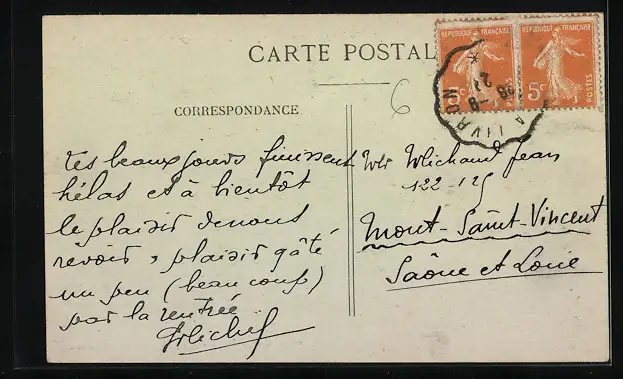 CARTE POSTAL
REPUBLIQUE FRANÇAISE
5c
POSTES
REPUBLIQUE FRANÇAISE
5c
POSTES
A LIVRON
28 - 8
21
6
CORRESPONDANCE
Les beaux jours finissent
hélas et à bientôt
le plaisir de nous
revoir, plaisir gâté
un peu (beaucoup)
par la rentrée
Michaud Jean
122-125
Mont-Saint-Vincent
Saône et Loire